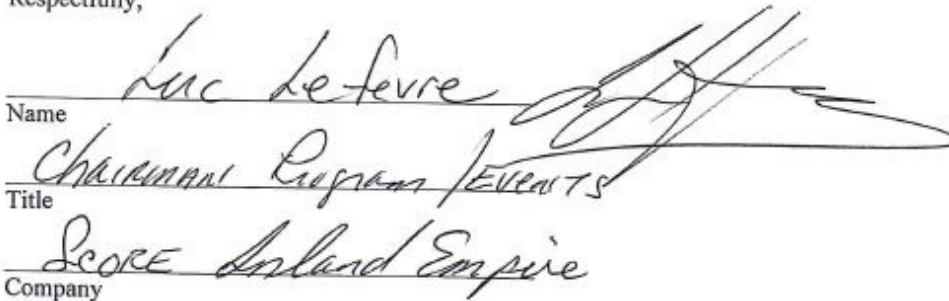 Respectfully,
Luc Lefevre
Name
Chairman Program / Events
Title
SCORE Inland Empire
Company